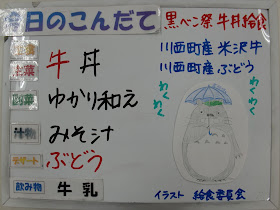 今日のこんだて
黒べこ祭 牛丼給食
主食
主菜
牛丼
副菜
ゆかり和え
汁物
みそ汁
デザート
ぶどう
飲み物
牛乳
川西町産 米沢牛
川西町産 ぶどう
わくわく
わくわく
イラスト 給食委員会